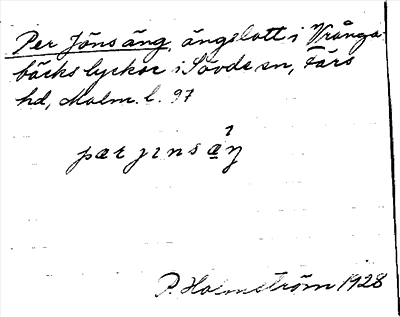 Per Jöns äng, ängslott i Vrånga-
bäckslyckor i Sövde sn, Färs
hd, Malm. l. 97
pær jɪns æ̀ŋ
P. Holmström 1928